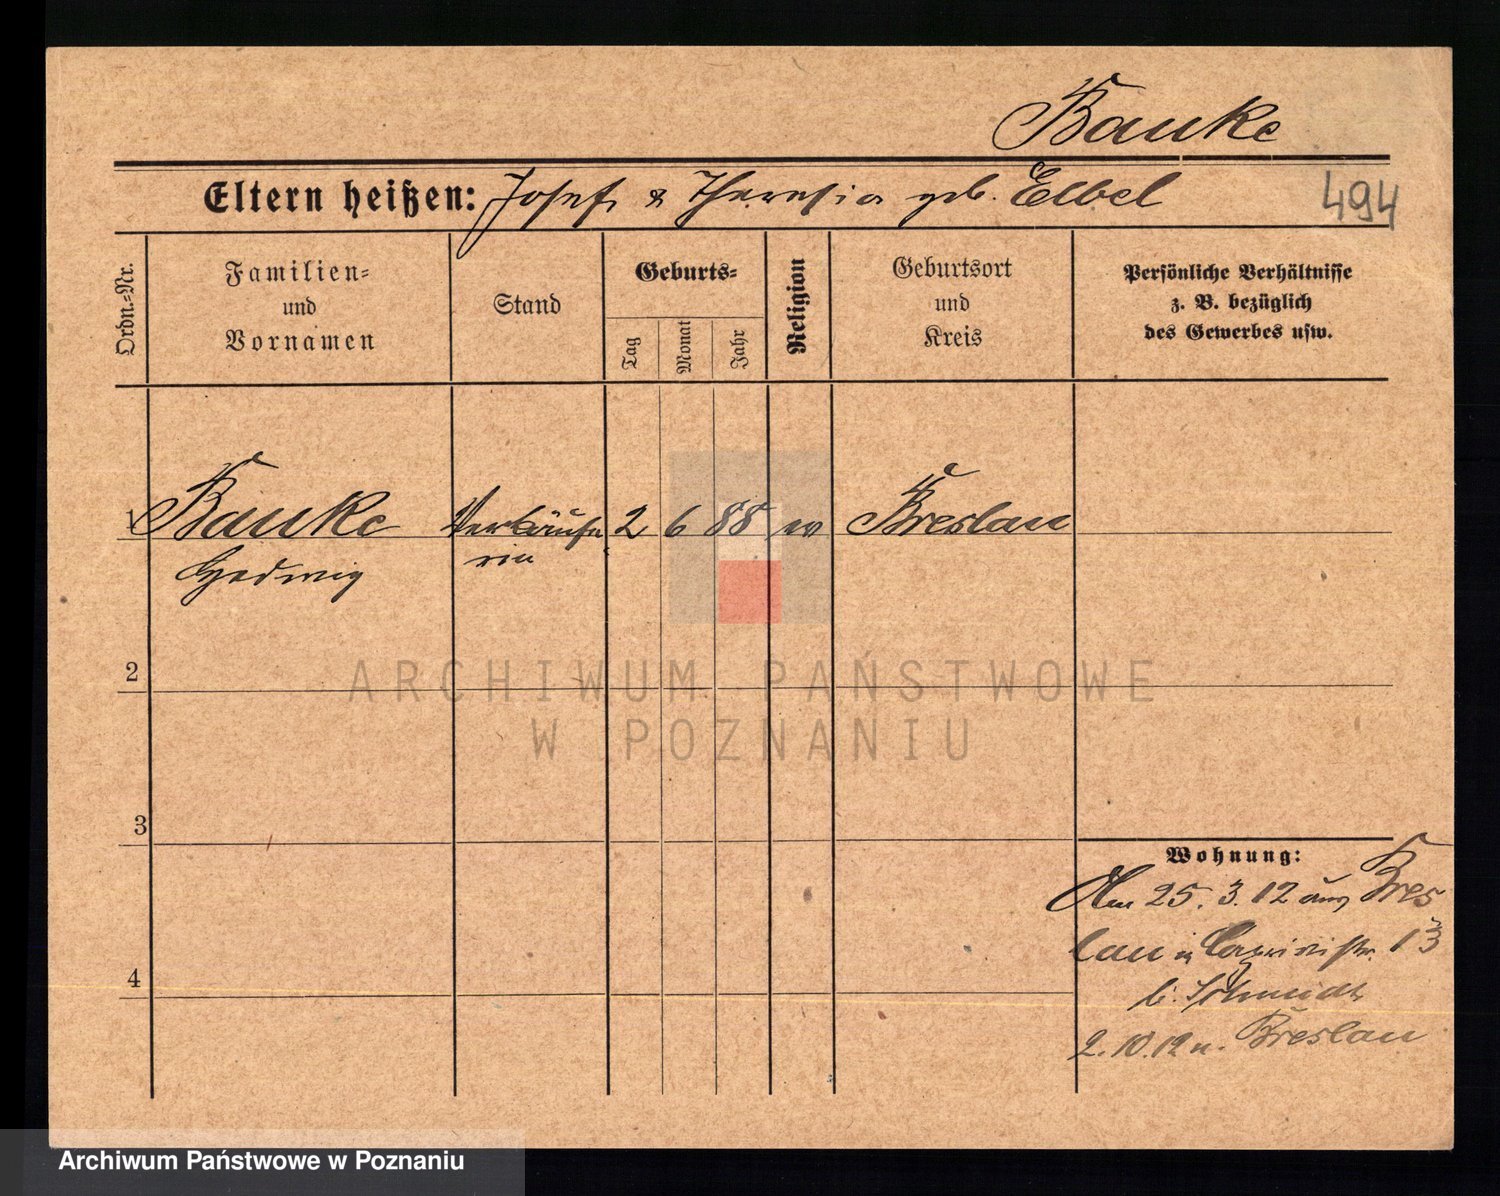 Banke
Eltern heißen: Josef & Theresia geb. Elbel
494
Ordn.-Nr.
Familien-
und
Vornamen
Stand
Geburts-
Tag
Monat
Jahr
Religion
Geburtsort
und
Kreis
Persönliche Verhältnisse
z. B. bezüglich
des Gewerbes usw.
1 Banke Verkäufe 2 6 88 ev Breslau
Hedwig rin
2
3
4
Wohnung:
Am 25. 3. 12 aus Bres
lau in Caprivistr. 13
b. Schmidt
2. 10. 12 n. Breslau
ARCHIWUM PAŃSTWOWE
W POZNANIU
Archiwum Państwowe w Poznaniu